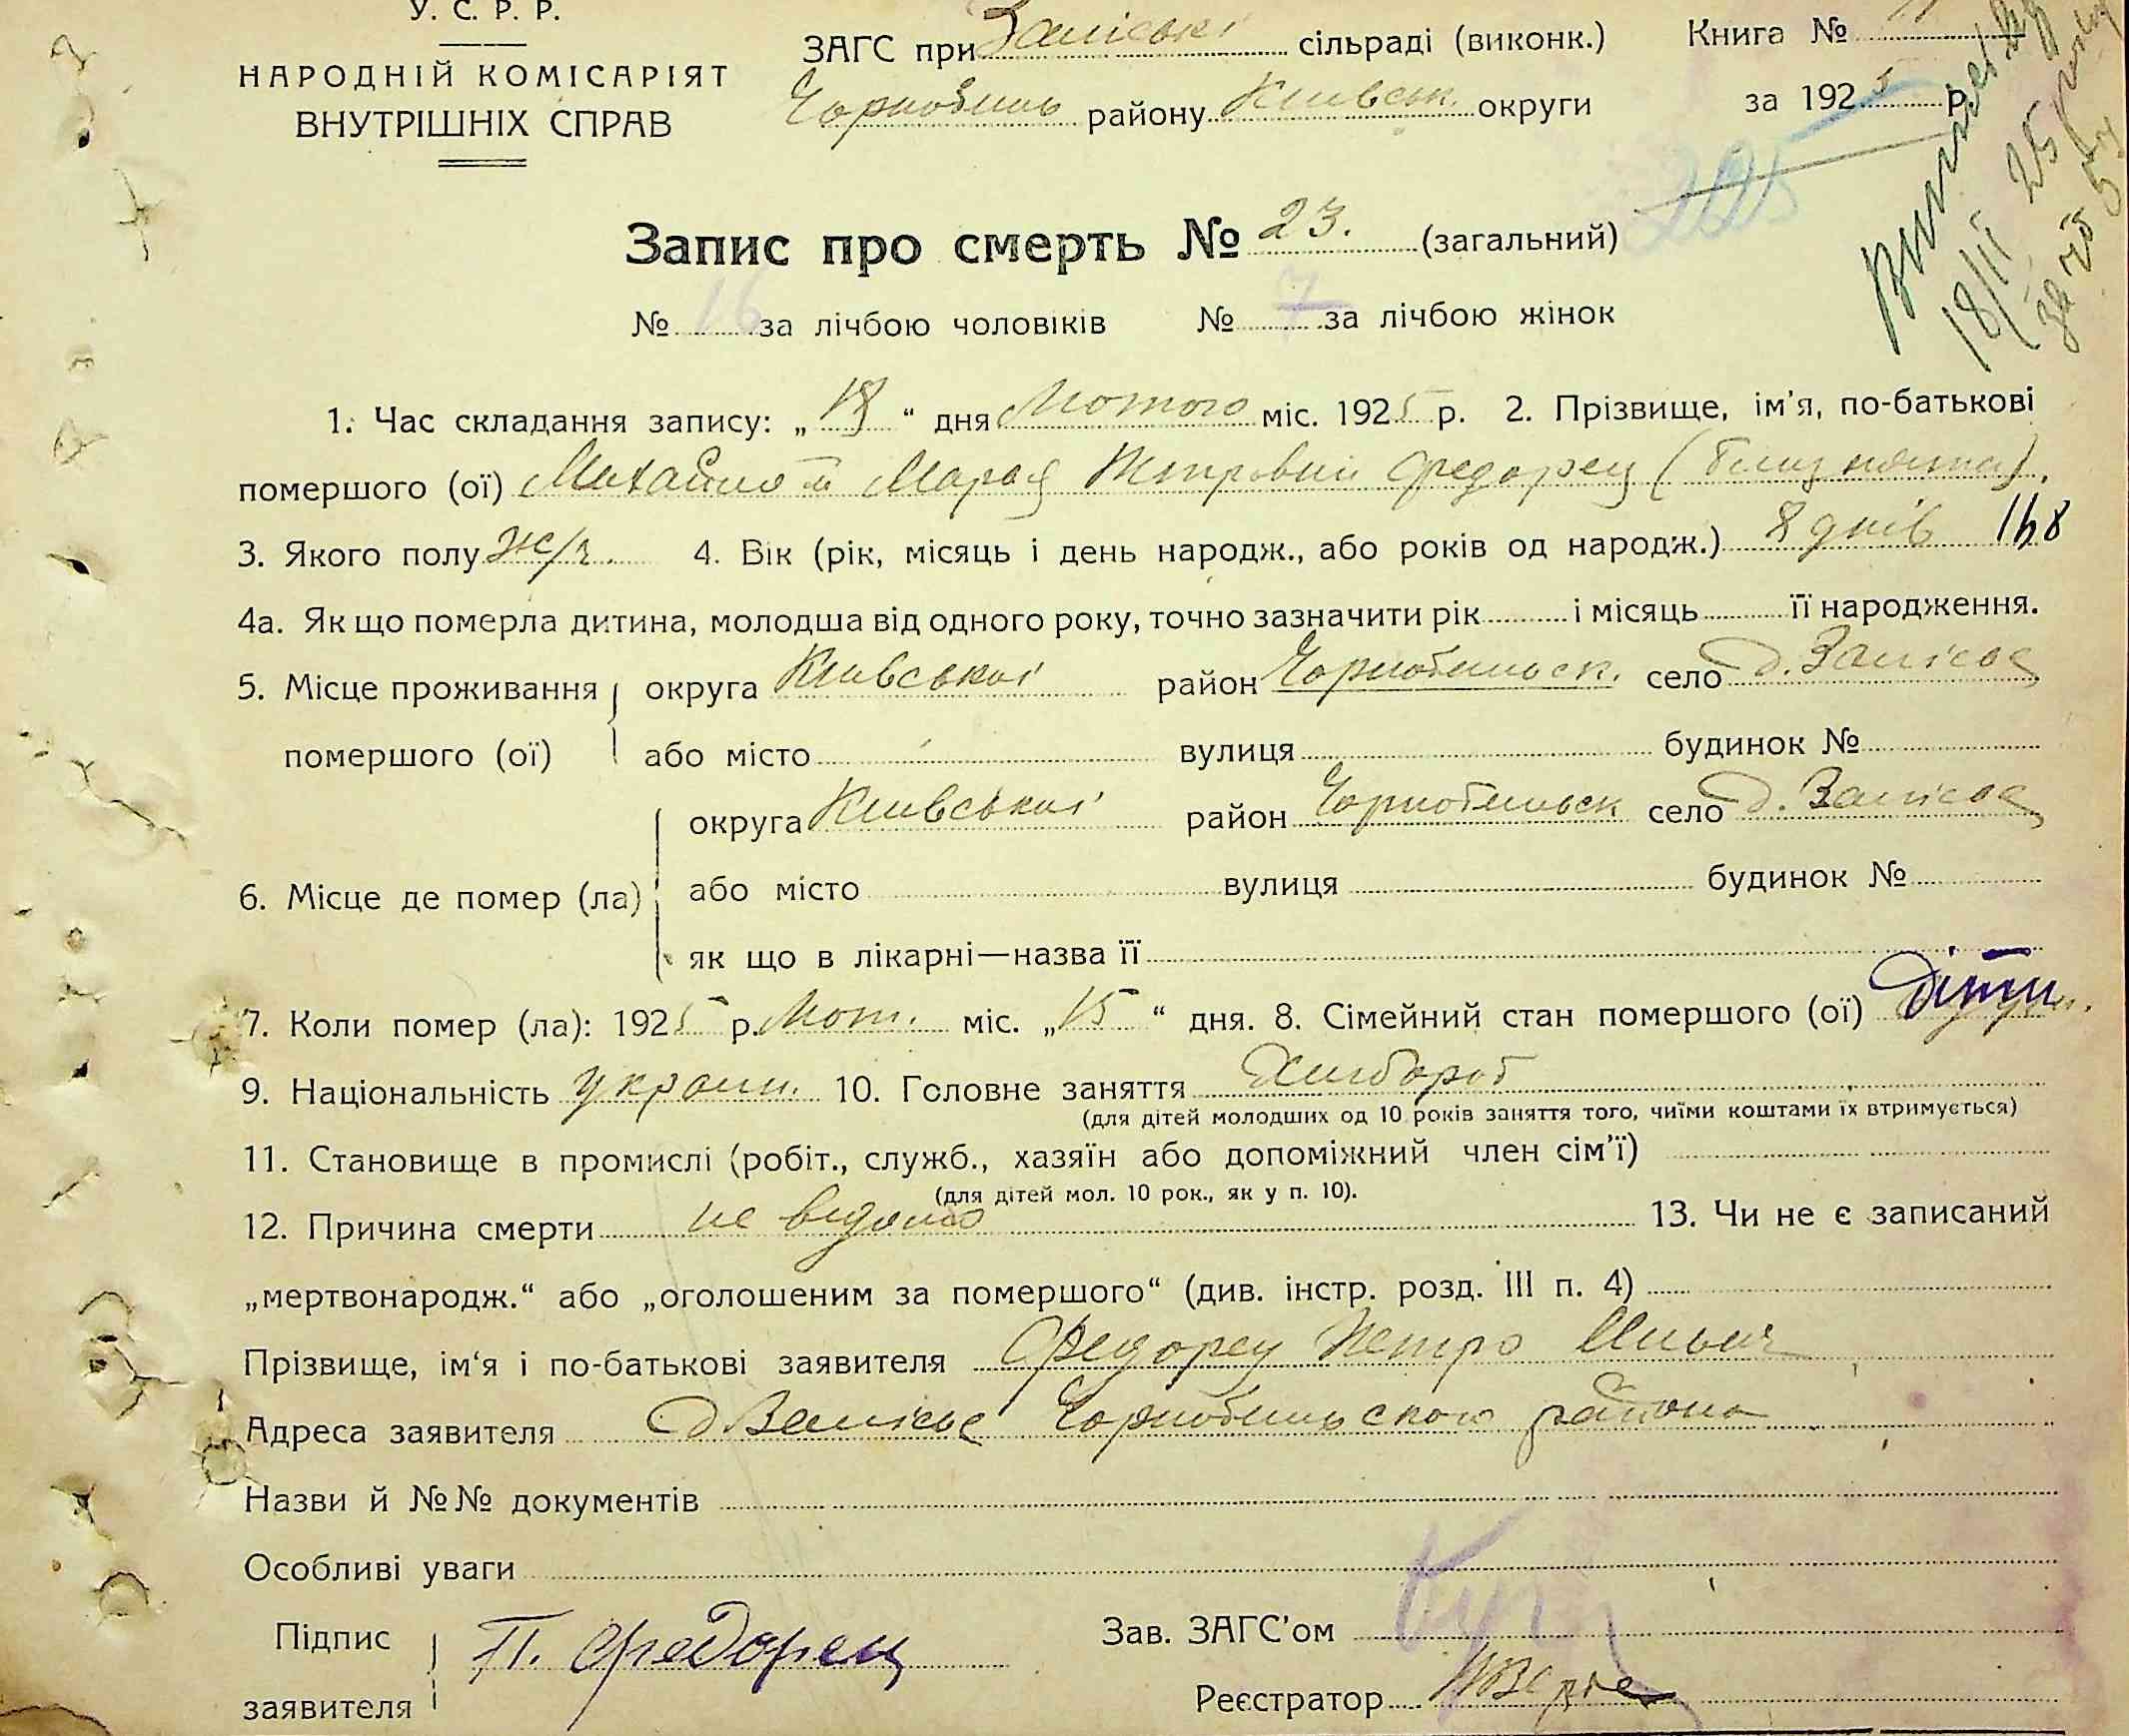 У. С. Р. Р.
НАРОДНІЙ КОМІСАРІЯТ
ВНУТРІШНІХ СПРАВ
ЗАГС при Заліській сільраді (виконк.)
Чорнобиль району Київськ. округи
Книга №
за 1925 р.
225
18/II 25
Запис про смерть № 23. (загальний)
№ 16 за лічбою чоловіків № 7 за лічбою жінок
1. Час складання запису: „18“ дня Лютого міс. 1925 р. 2. Прізвище, ім'я, по-батькові
помершого (ої) Михайло й Марія Петровий Федорец (близнята).
3. Якого полу ж/ч. 4. Вік (рік, місяць і день народж., або років од народж.) 8 днів
4а. Як що померла дитина, молодша від одного року, точно зазначити рік і місяць її народження.
5. Місце проживання помершого (ої) округа Київської район Чорнобильськ. село д. Залісся
або місто вулиця будинок №
6. Місце де помер (ла) округа Київської район Чорнобильськ село д. Залісся
або місто вулиця будинок №
як що в лікарні—назва її
7. Коли помер (ла): 1925 р. Лют. міс. „15“ дня. 8. Сімейний стан помершого (ої) діти
9. Національність україн. 10. Головне заняття Хлібороб
(для дітей молодших од 10 років заняття того, чиїми коштами їх втримується)
11. Становище в промислі (робіт., служб., хазяїн або допоміжний член сім'ї)
(для дітей мол. 10 рок., як у п. 10).
12. Причина смерти не відомо 13. Чи не є записаний
„мертвонародж.“ або „оголошеним за помершого“ (див. інстр. розд. III п. 4)
Прізвище, ім'я і по-батькові заявителя Федорец Петро Ильич
Адреса заявителя д Залісся Чорнобильского района
Назви й №№ документів
Особливі уваги
Підпис заявителя П. Федорец
Зав. ЗАГС'ом
Реєстратор